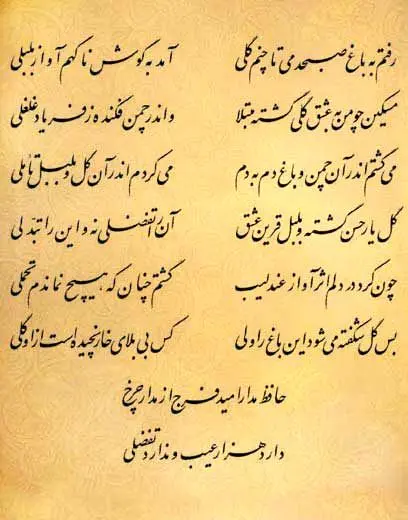 رفتم به باغ صبحدمی تا چنم گلی آمد به گوش ناگهم آواز بلبلی
مسکین چو من به عشق گلی گشته مبتلا واندر چمن فکنده ز فریاد غلغلی
می گشتم اندر آن چمن و باغ دم به دم می کردم اندر آن گل و بلبل تاملی
گل یار حسن گشته و بلبل قرین عشق آن را تفضلی نه و این را تبدلی
چون کرد در دلم اثر آواز عندلیب گشتم چنان که هیچ نماندم تحملی
بس گل شکفته می شود این باغ را ولی کس بی بلای خار نچیده است از او گلی
حافظ مدار امید فرج از مدار چرخ
دارد هزار عیب و ندارد تفضلی